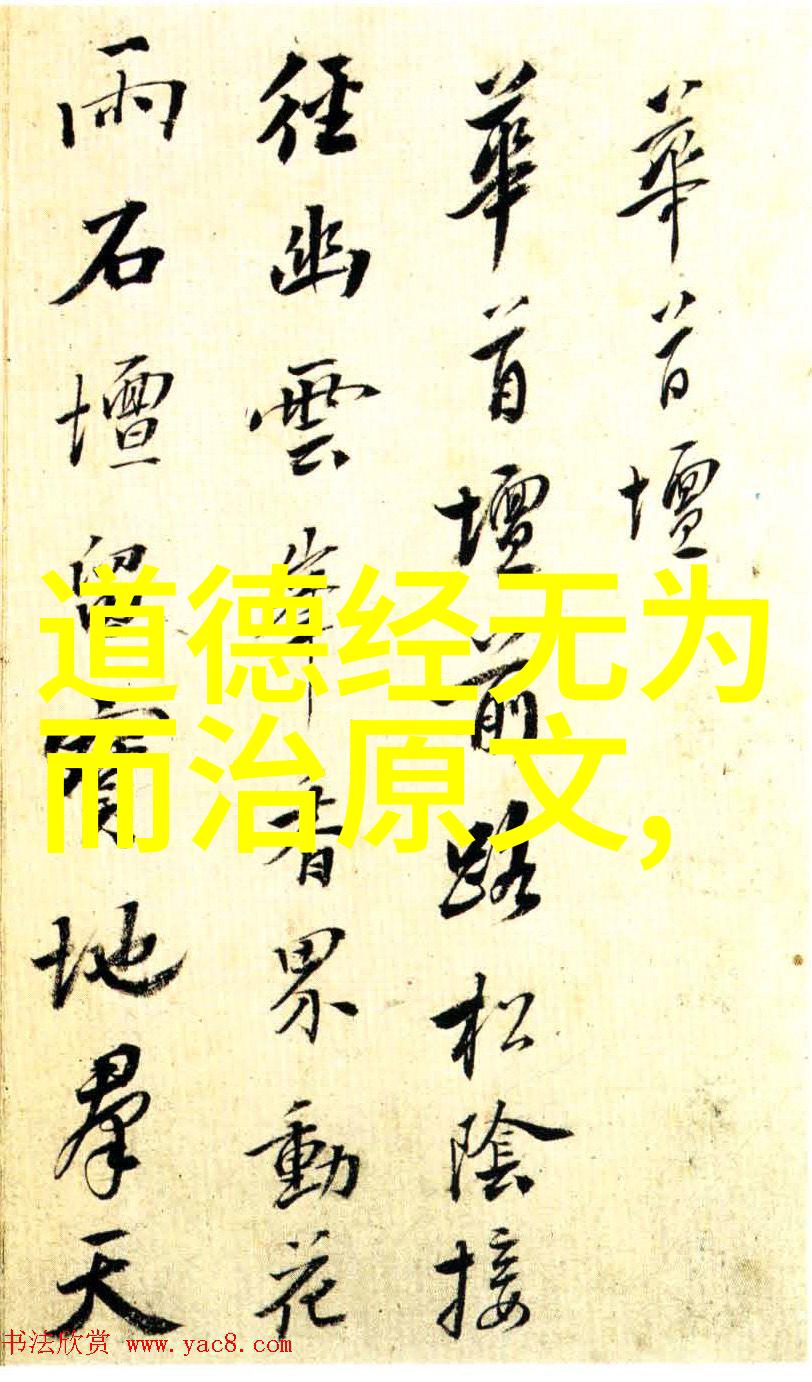 華首壇
華首壇前路松陰接
徑幽雲峯香界動花
雨石壇留寶地羣天
道德经无为
而治原文,
书法欣赏 www.yac8.com